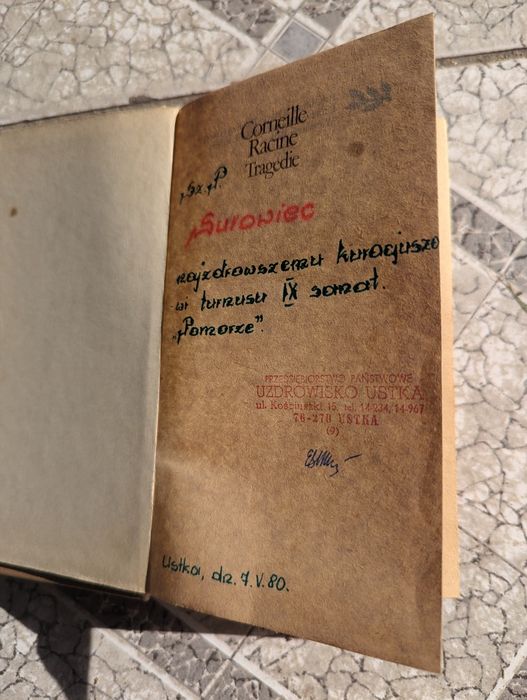 Corneille
Racine
Tragedie
Sz. P.
Surowiec
najzdrowszemu kuracjuszo
w turnusu IX sanat.
„Pomorze”.
PRZEDSIĘBIORSTWO PAŃSTWOWE
UZDROWISKO USTKA
ul. Kościuszki 15, tel. 14-234, 14-967
76-270 USTKA
(9)
Ustka, dn. 7.V.80.